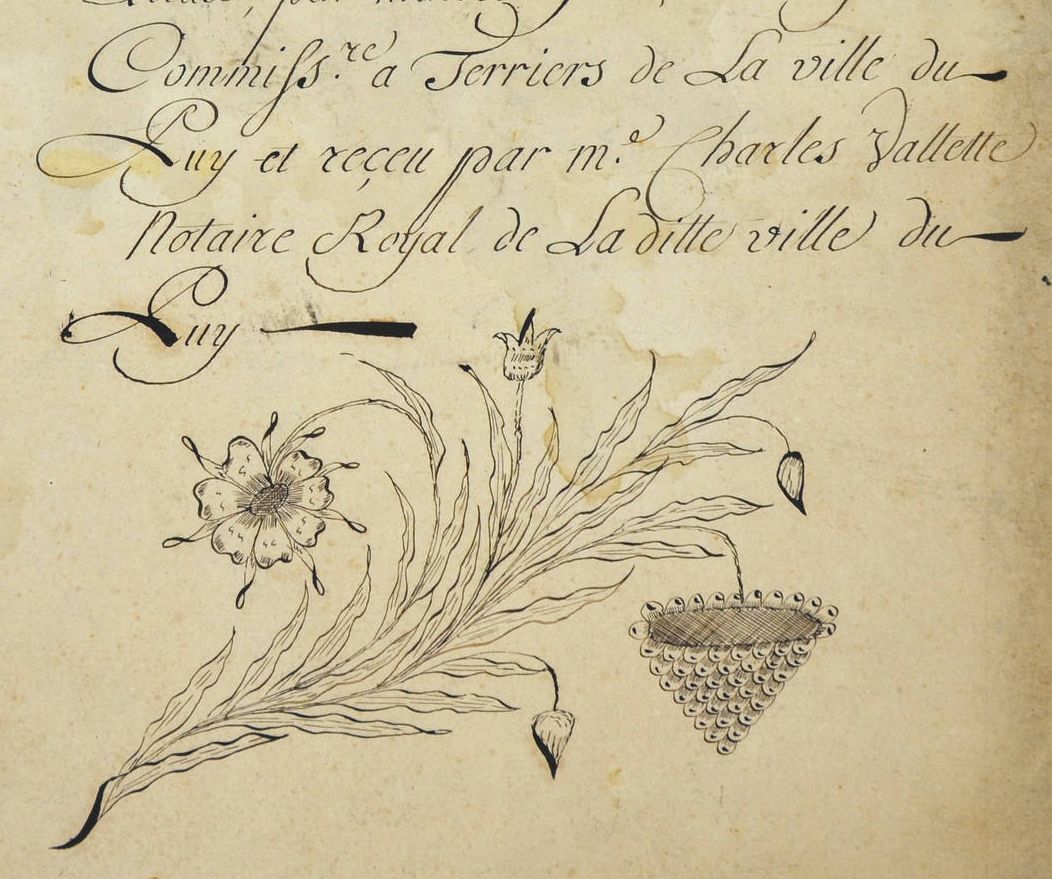 par
Commiss.re a Terriers de La ville du
Puy et reçeu par m.e Charles Vallette
Notaire Royal de Laditte ville du
Puy